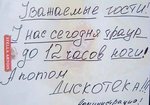 Уважаемые гости!
У нас сегодня траур
до 12 часов ночи!
А потом
Дискотека!!!
Администрация!